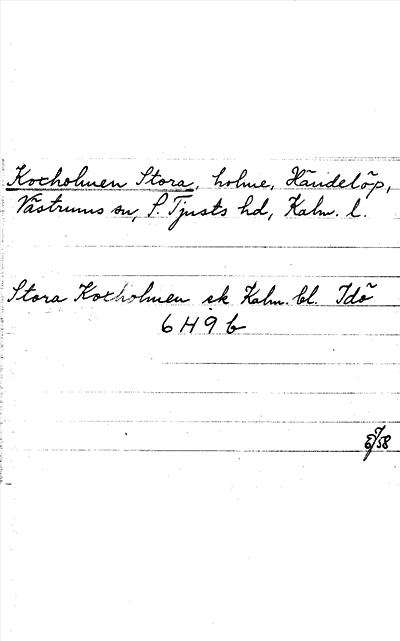 Koxholmen Stora, holme, Händelöp,
Västrums sn, S. Tjusts hd, Kalm. l.
Stora Koxholmen ek Kalm. bl. Idö
6 H 9 b